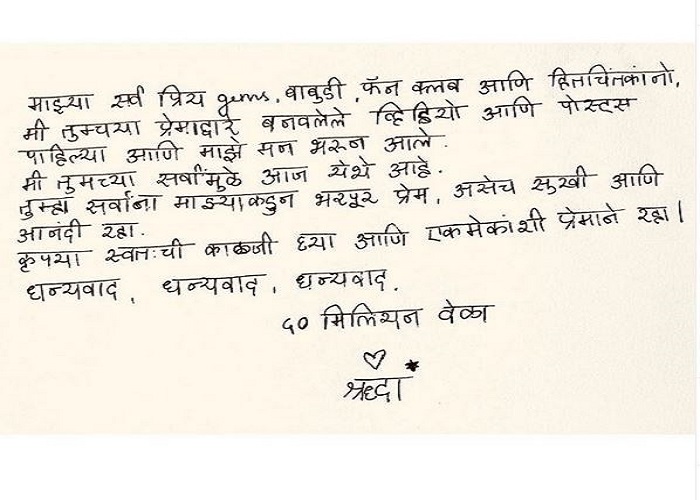 माझ्या सर्व प्रिय gems, बाबुडी, फॅन क्लब आणि हितचिंतकांनो,
मी तुमच्या प्रेमाद्वारे बनवलेले व्हिडियो आणि पोस्ट्स
पाहिल्या आणि माझे मन भरून आले.
मी तुमच्या सर्वांमुळे आज येथे आहे.
तुम्हा सर्वांना माझ्याकडुन भरपूर प्रेम, असेच सुखी आणि
आनंदी रहा.
कृपया स्वतःची काळजी घ्या आणि एकमेकांशी प्रेमाने रहा।
धन्यवाद, धन्यवाद, धन्यवाद.
५० मिलियन वेळा
♡ *
श्रद्धा